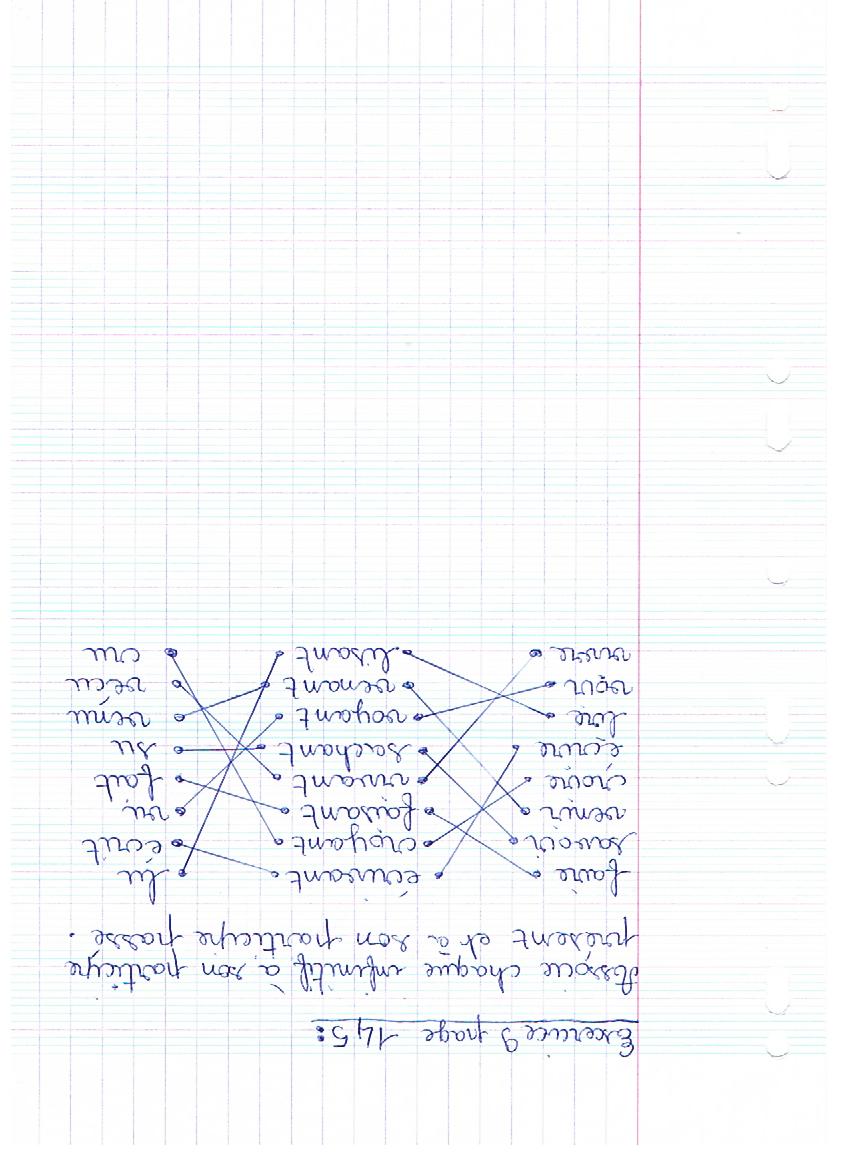 Exercice 9 page 145 :
Associe chaque infinitif à son participe
présent et à son participe passé.
faire écrivant lu
savoir croyant écrit
venir faisant vu
croire vivant fait
écrire sachant su
lire voyant venu
voir venant vécu
vivre lisant cru